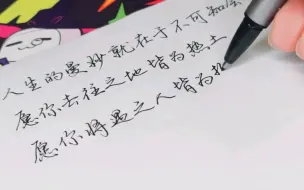 人生的曼妙就在于不可知
愿你去往之地皆为热土
愿你将遇之人皆为